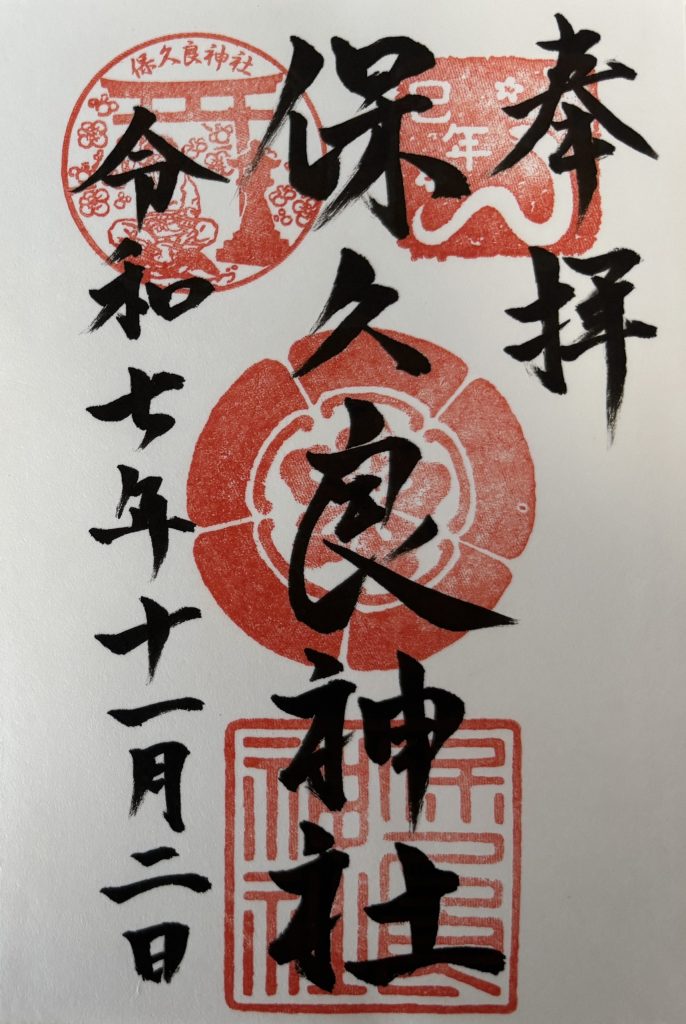 奉拝
巳年
保久良神社
保久良神社
保久良神社
令和七年十一月二日